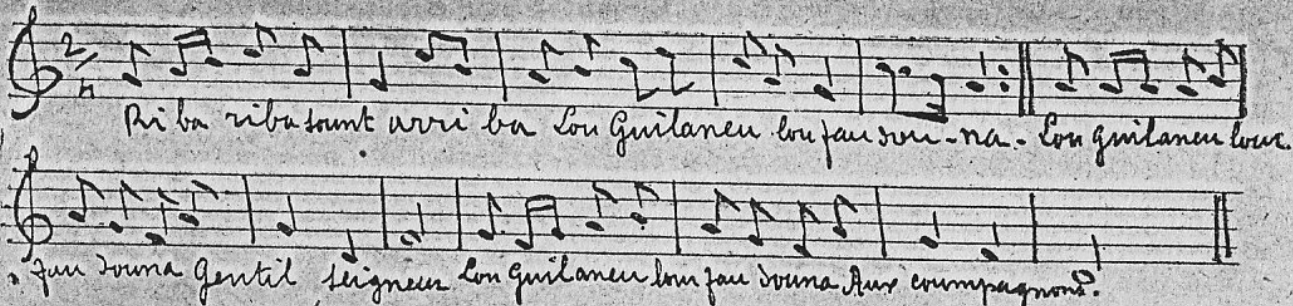 Ri ba riba sount arri ba Lou Guilaneu lou fau sou - na - Lou guilaneu lour
fau souna Gentil seigneur Lou Guilaneu lour fau souna Aux coumpagnons.